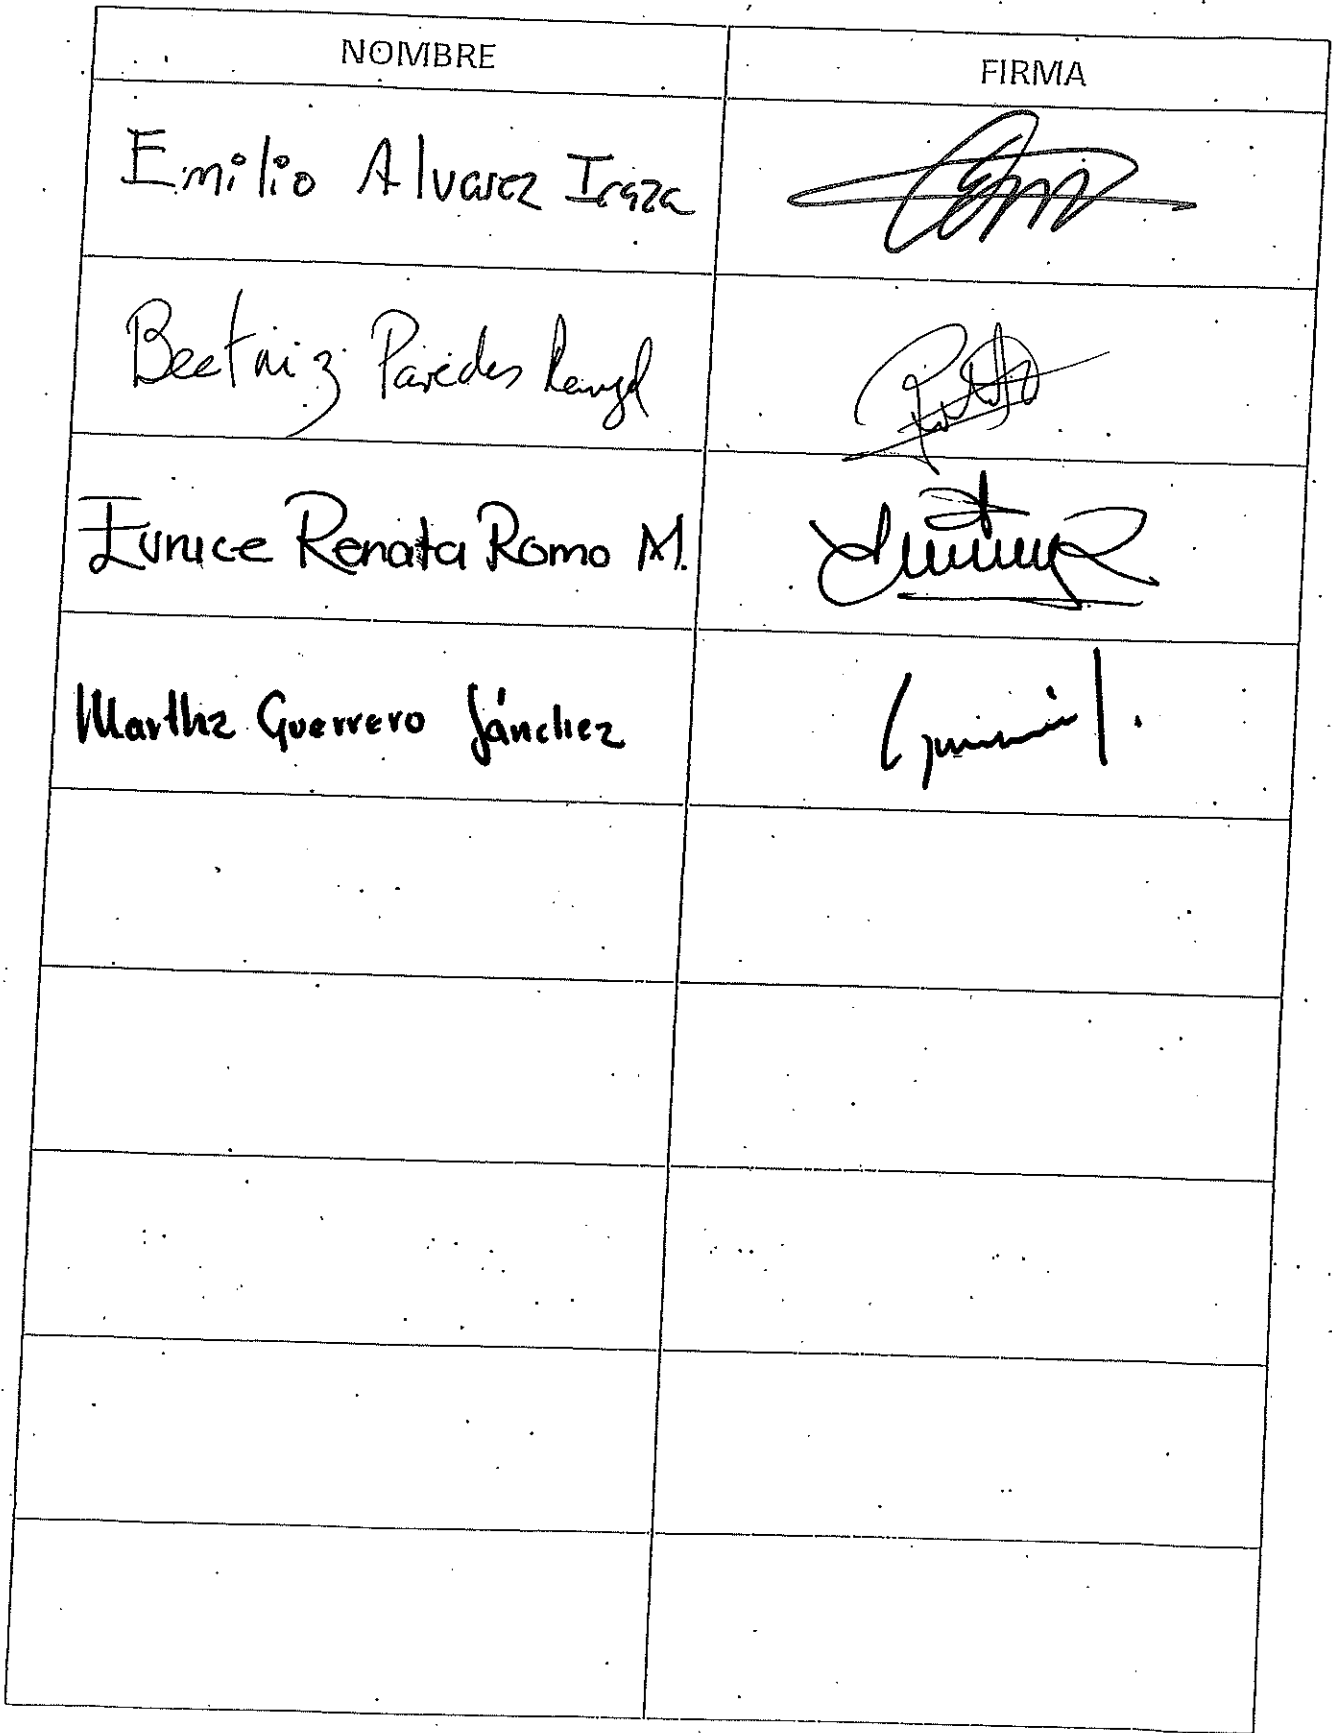 NOMBRE FIRMA
Emilio Alvarez Icaza
Beatriz Paredes Rangel
Eunice Renata Romo M.
Martha Guerrero Sánchez